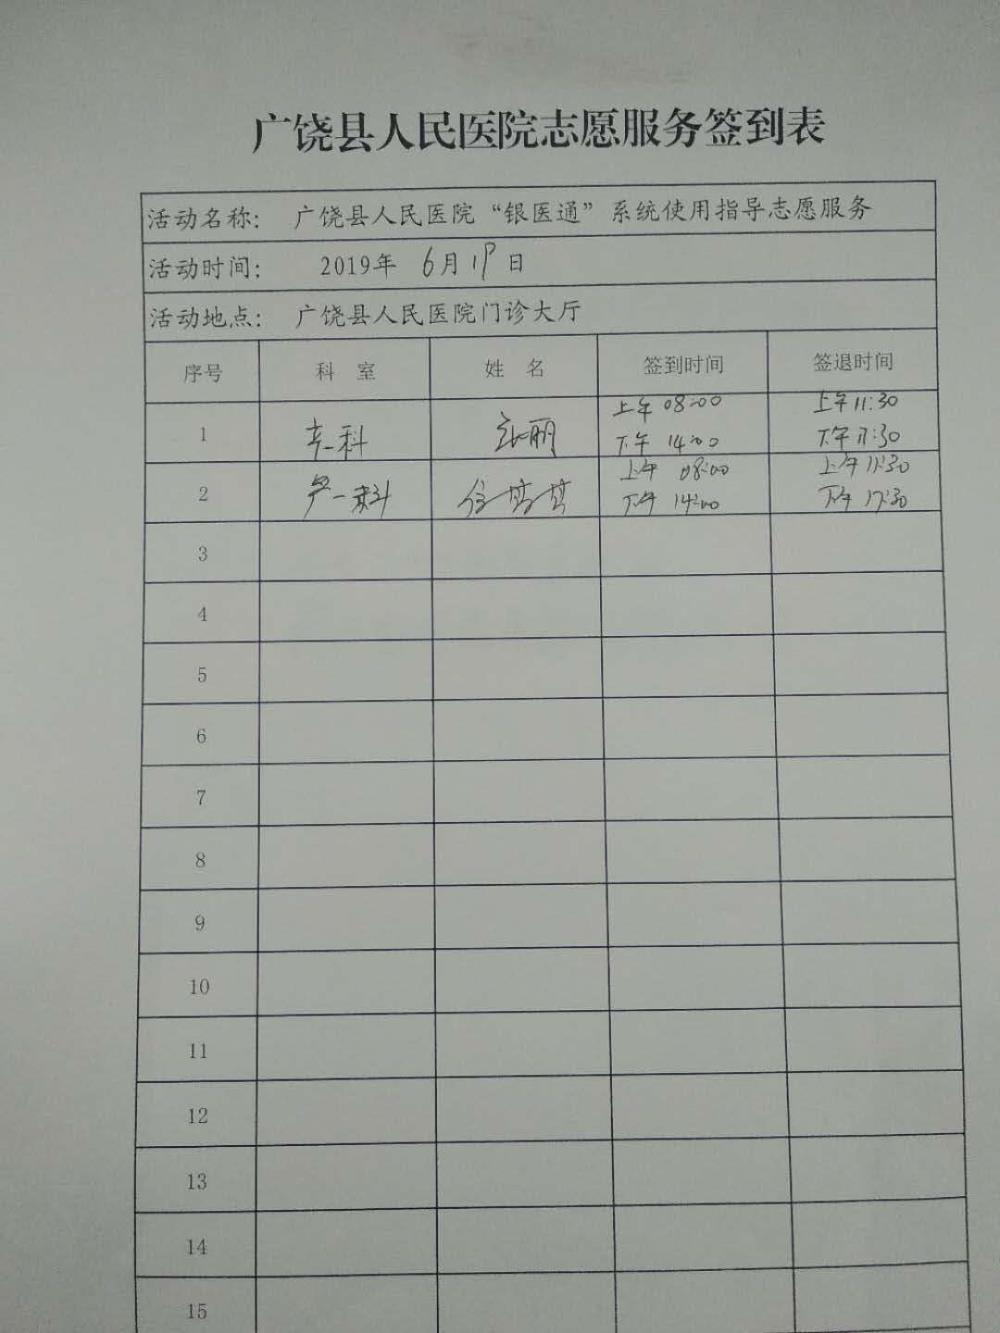 广饶县人民医院志愿服务签到表
活动名称: 广饶县人民医院“银医通”系统使用指导志愿服务
活动时间: 2019年 6月19日
活动地点: 广饶县人民医院门诊大厅
序号 科 室 姓 名 签到时间 签退时间
1 科 张丽 上午 08:00 上午 11:30
下午 14:00 下午 17:30
2 一科 上午 08:00 上午 11:30
下午 14:00 下午 17:30
3
4
5
6
7
8
9
10
11
12
13
14
15